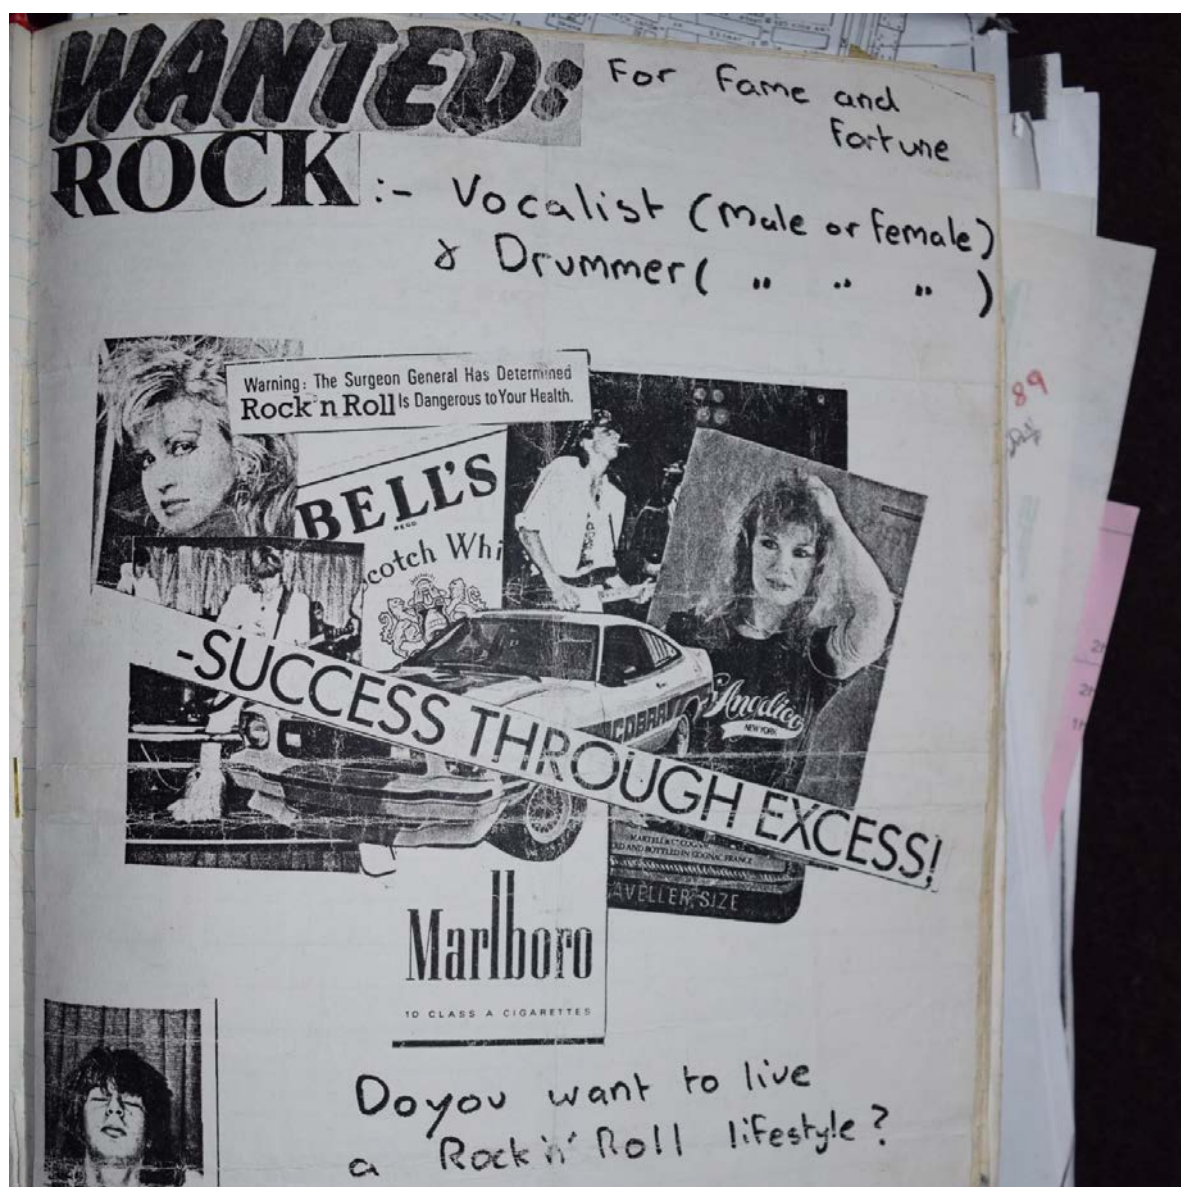 WANTED: For Fame and
Fortune
ROCK :- Vocalist (Male or Female)
& Drummer ( " " " )
Warning: The Surgeon General Has Determined
Rock 'n Roll Is Dangerous to Your Health.
BELL'S
REGD
Scotch Whi
COBRA
Angelica
NEW YORK
-SUCCESS THROUGH EXCESS!
MARTELL & Co COGNAC
AND BOTTLED IN COGNAC FRANCE
AVELLER SIZE
Marlboro
10 CLASS A CIGARETTES
Do you want to live
a Rock 'n' Roll lifestyle?
89